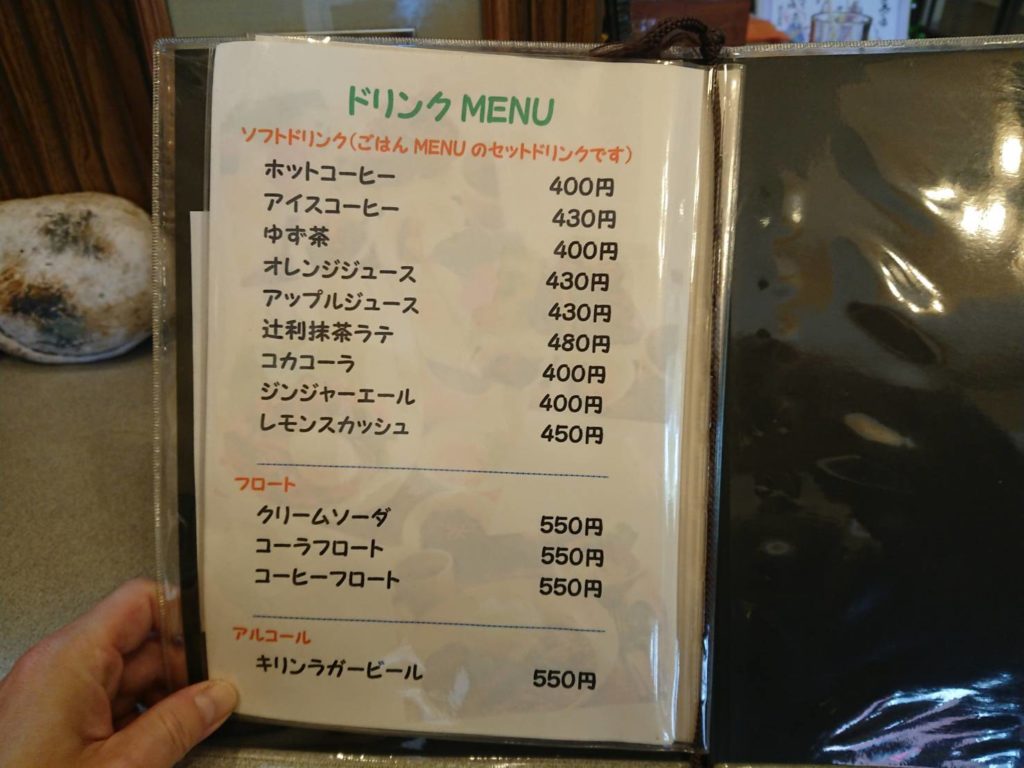 ドリンク MENU
ソフトドリンク(ごはん MENU のセットドリンクです)
ホットコーヒー 400円
アイスコーヒー 430円
ゆず茶 400円
オレンジジュース 430円
アップルジュース 430円
辻利抹茶ラテ 480円
コカコーラ 400円
ジンジャーエール 400円
レモンスカッシュ 450円
フロート
クリームソーダ 550円
コーラフロート 550円
コーヒーフロート 550円
アルコール
キリンラガービール 550円